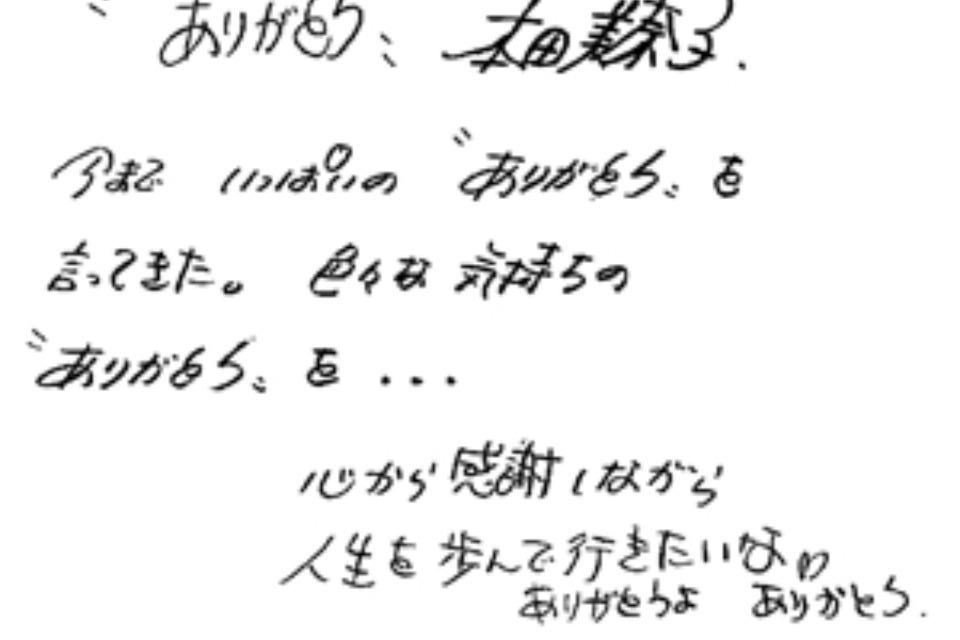 〝ありがとう〟 太田美奈子.
今まで いっぱいの 〝ありがとう〟 を
言ってきた。 色々な 気持ちの
〝ありがとう〟 を ...
心から 感謝 しながら
人生を 歩んで 行きたいなぁ
ありがとうよ ありがとう.